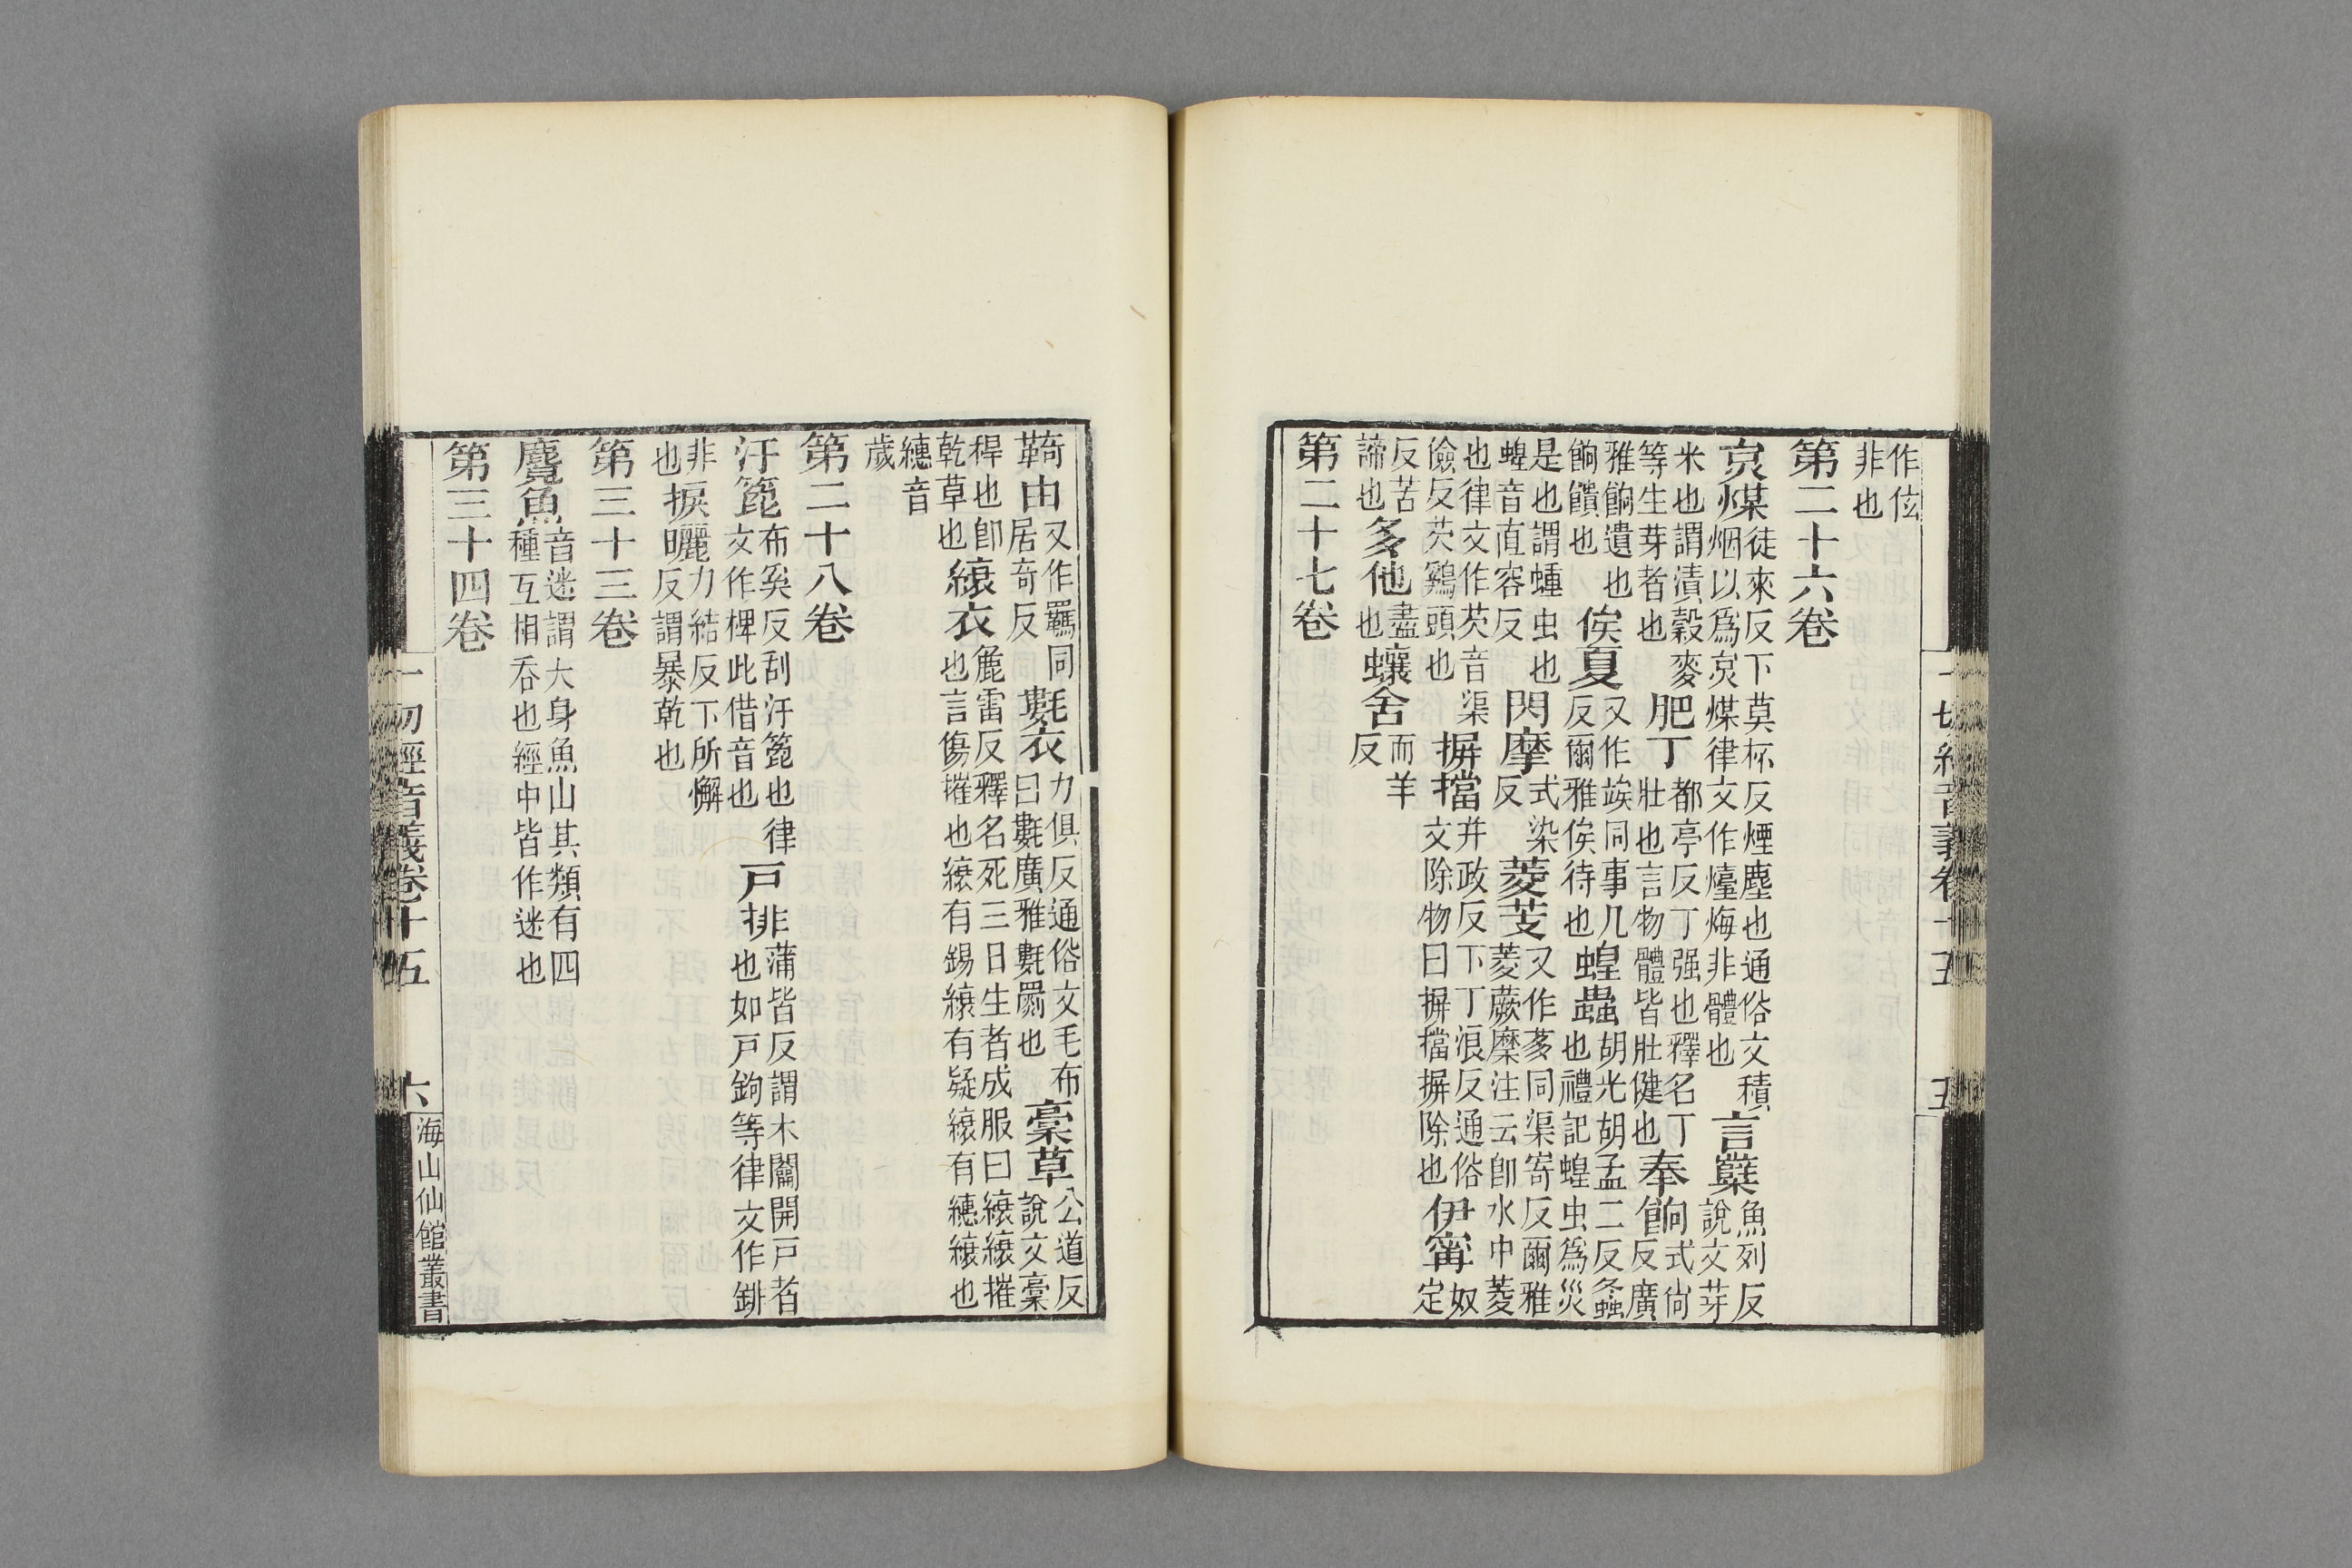 作伭非也
第二十六卷
炱煤徒來反下莫杯反煙塵也通俗文積烟以爲炱煤律文作㙜烸非體也言櫱魚列反說文芽
米也謂漬穀麥等生芽者也肥丁都亭反丁强也釋名丁壯也言物體皆壯健也奉餉式尙反廣
雅餉遺也餉饋也俟夏又作竢同事几反爾雅俟待也蝗蟲胡光胡孟二反螽也禮記蝗虫爲災
是也謂蝩虫也蝩音直容反閃摩式染反菱芰又作䔖同渠寄反爾雅菱蕨攗注云卽水中菱
也律文作芡音渠儉反芡鷄頭也摒擋并政反下丁浪反通俗文除物曰摒擋摒除也伊寗奴定
反苦諦也多他盡也蠰舍而羊反
第二十七卷
一切經音義卷十五 五
由又作羈同居奇反氀衣力俱反通俗文毛布曰氀廣雅氀罽也稾草公道反說文稾
稈也卽乾草也縗衣麁雷反釋名死三日生者成服曰縗縗摧也言傷摧也縗有錫縗有疑縗有繐縗也
繐音歲
第二十八卷
汗箆布奚反刮汗箆也律文作椑此借音也戸排蒲皆反謂木闗開戸者也如戸鉤等律文作
非也捩曬力結反下所懈反謂暴乾也
第三十三卷
麛魚音迷謂大身魚山其類有四種互相吞也經中皆作迷也
第三十四卷
一切經音義卷十五 六 海山仙館叢書